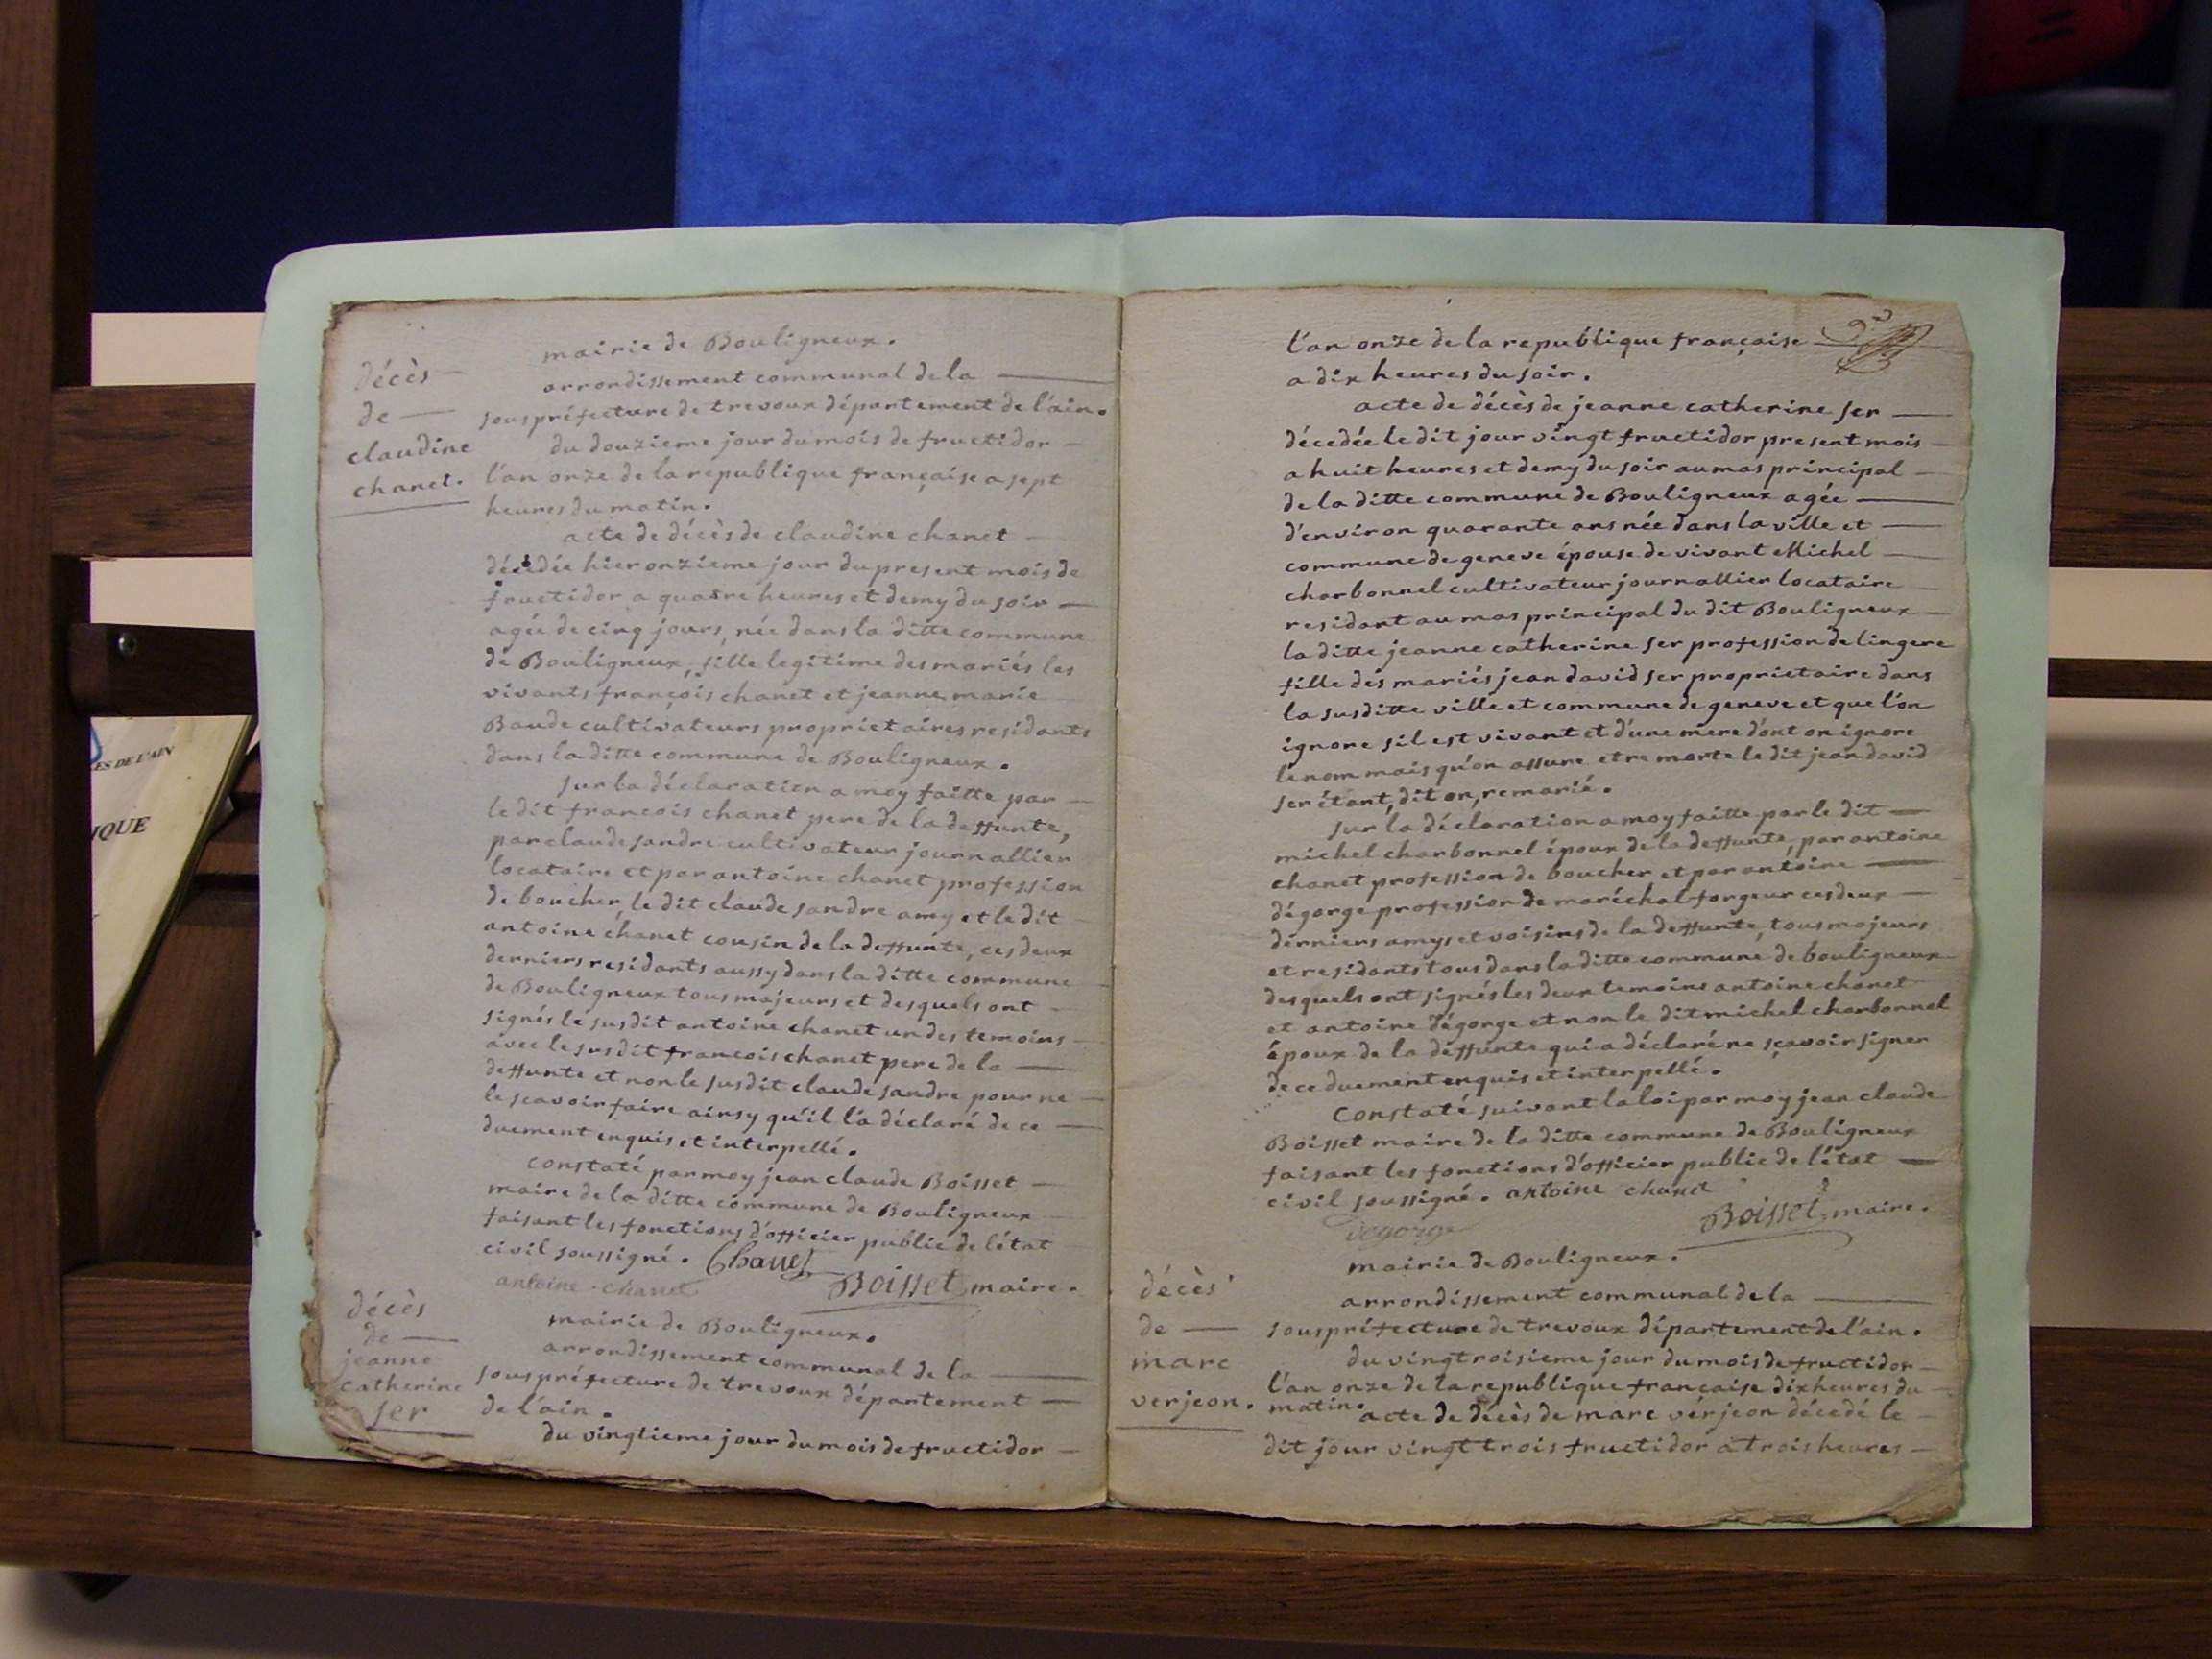 mairie de Bouligneux.
décès
de
claudine
chanet.
arrondissement communal de la
souspréfecture de trevoux département de l'ain.
du douzieme jour du mois de fructidor
l'an onze de la republique française a sept
heures du matin.
acte de décès de claudine chanet
décédée hier onzieme jour du present mois de
fructidor a quatre heures et demy du soir
agée de cinq jours, née dans la ditte commune
de Bouligneux, fille legitime des mariés les
vivants françois chanet et jeanne marie
Baude cultivateurs proprietaires residants
dans la ditte commune de Bouligneux.
sur la déclaration a moy faitte par
le dit francois chanet pere de la deffunte,
par claude sandre cultivateur journallier
locataire et par antoine chanet profession
de boucher, le dit claude sandre amy et le dit
antoine chanet cousin de la deffunte, ces deux
derniers residants aussy dans la ditte commune
de Bouligneux tous majeurs et desquels ont
signés le susdit antoine chanet un des temoins
avec le susdit francois chanet pere de la
deffunte et non le susdit claude sandre pour ne
le scavoir faire ainsy qu'il l'a déclaré de ce
duement enquis et interpellé.
constaté par moy jean claude Boisset
maire de la ditte commune de Bouligneux
faisant les fonctions d'officier public de l'état
civil soussigné. Chanet
antoine chanet Boisset, maire.
décès
de
jeanne
catherine
ser
mairie de Bouligneux.
arrondissement communal de la
souspréfecture de trevoux département
de l'ain.
du vingtieme jour du mois de fructidor
l'an onze de la republique française
a dix heures du soir.
acte de décès de jeanne catherine ser
décedée le dit jour vingt fructidor present mois
a huit heures et demy du soir au mas principal
de la ditte commune de Bouligneux agée
d'environ quarante ans née dans la ville et
commune de geneve épouse de vivant Michel
charbonnel cultivateur journallier locataire
residant au mas principal du dit Bouligneux
la ditte jeanne catherine ser profession de lingere
fille des mariés jean david ser proprietaire dans
la susditte ville et commune de geneve et que l'on
ignore s'il est vivant et d'une mere dont on ignore
le nom mais qu'on assure etre morte le dit jean david
ser étant, dit on, remarié.
sur la déclaration a moy faitte par le dit
michel charbonnel époux de la deffunte, par antoine
chanet profession de boucher et par antoine
dégorge profession de maréchal forgeur ces deux
derniers amys et voisins de la deffunte, tous majeurs
et residants tous dans la ditte commune de bouligneux
desquels ont signés les deux temoins antoine chanet
et antoine dégorge et non le dit michel charbonnel
époux de la deffunte qui a déclaré ne sçavoir signer
de ce duement enquis et interpellé.
Constaté suivant la loi par moy jean claude
Boisset maire de la ditte commune de Bouligneux
faisant les fonctions d'officier public de l'état
civil soussigné. antoine chanet
degorge Boisset, maire.
mairie de Bouligneux.
décès
de
marc
verjeon.
arrondissement communal de la
souspréfecture de trevoux département de l'ain.
du vingtroisieme jour du mois de fructidor
l'an onze de la republique française dix heures du
matin.
acte de décès de marc verjeon décedé le
dit jour vingt trois fructidor a trois heures
ES DE L'AIN
IQUE